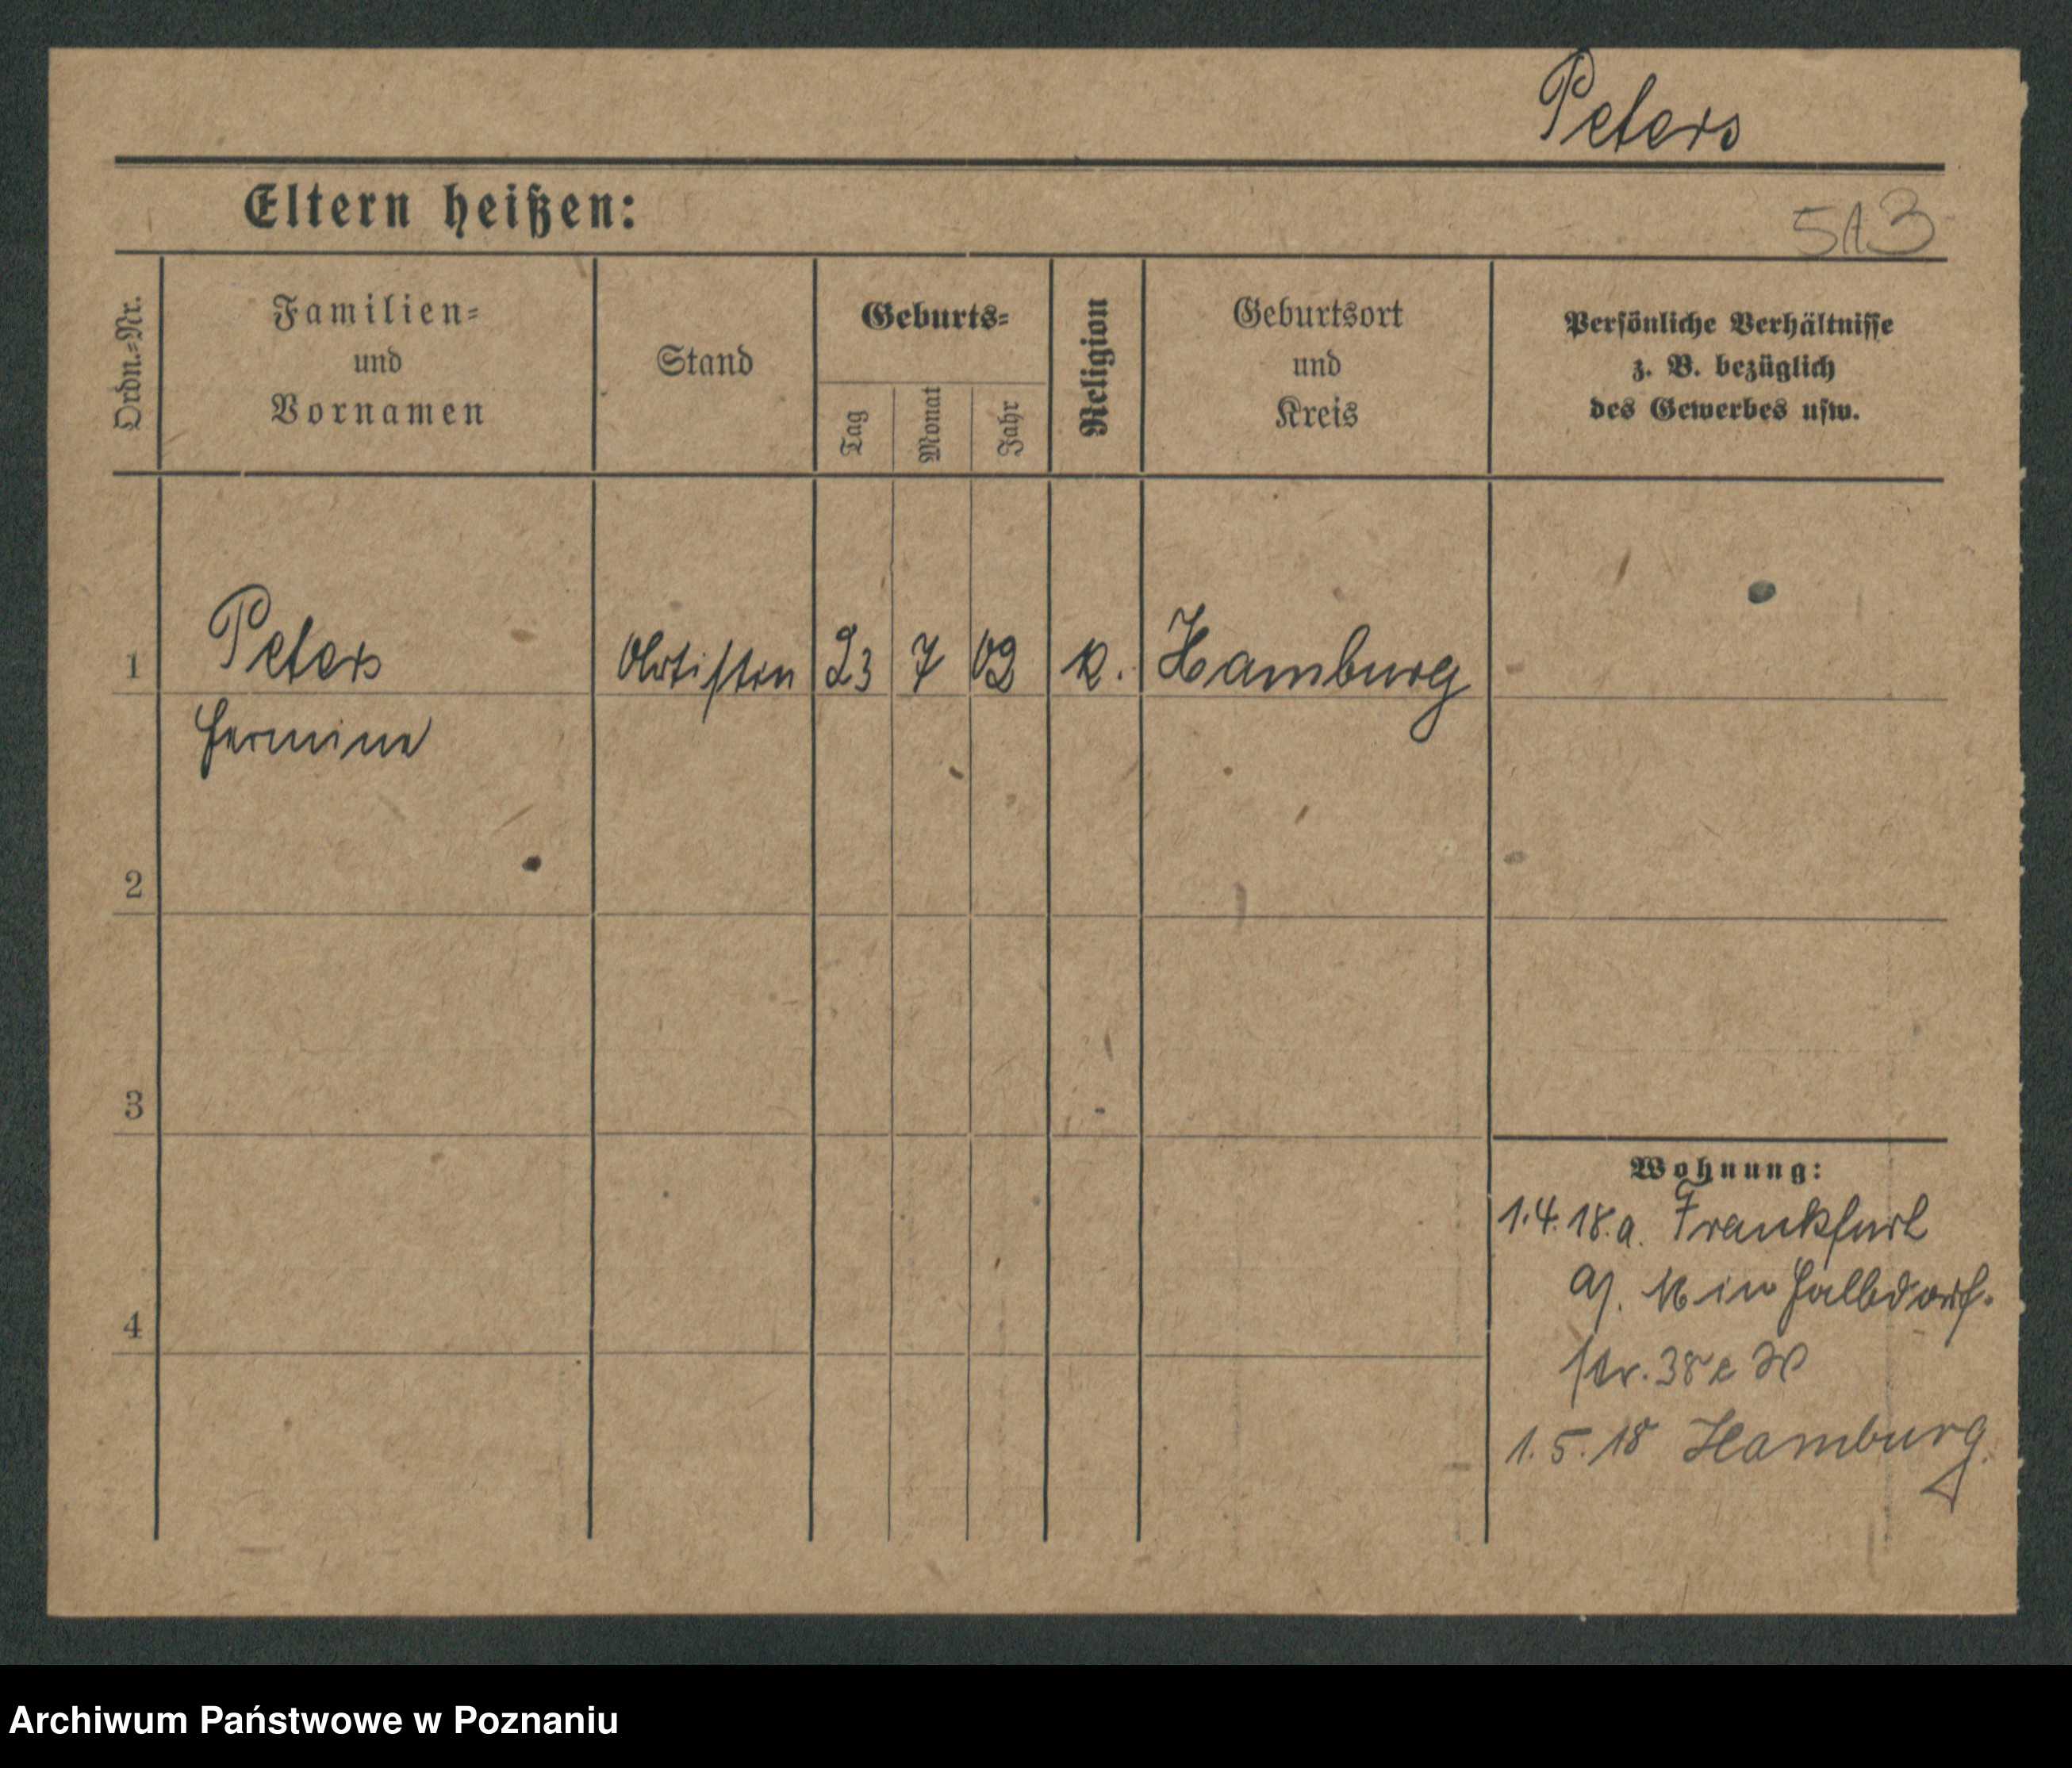 Peters
Eltern heißen:
513
Ordn.-Nr.
Familien-
und
Vornamen
Stand
Geburts-
Tag
Monat
Jahr
Religion
Geburtsort
und
Kreis
Persönliche Verhältnisse
z. B. bezüglich
des Gewerbes usw.
1 Peters Artistin 23 7 02 k. Hamburg
Hermine
2
3
4
Wohnung:
1.4.18. a. Frankfurt
a/. M in Halbdorf-
str. 38
1.5.18 Hamburg.
Archiwum Państwowe w Poznaniu